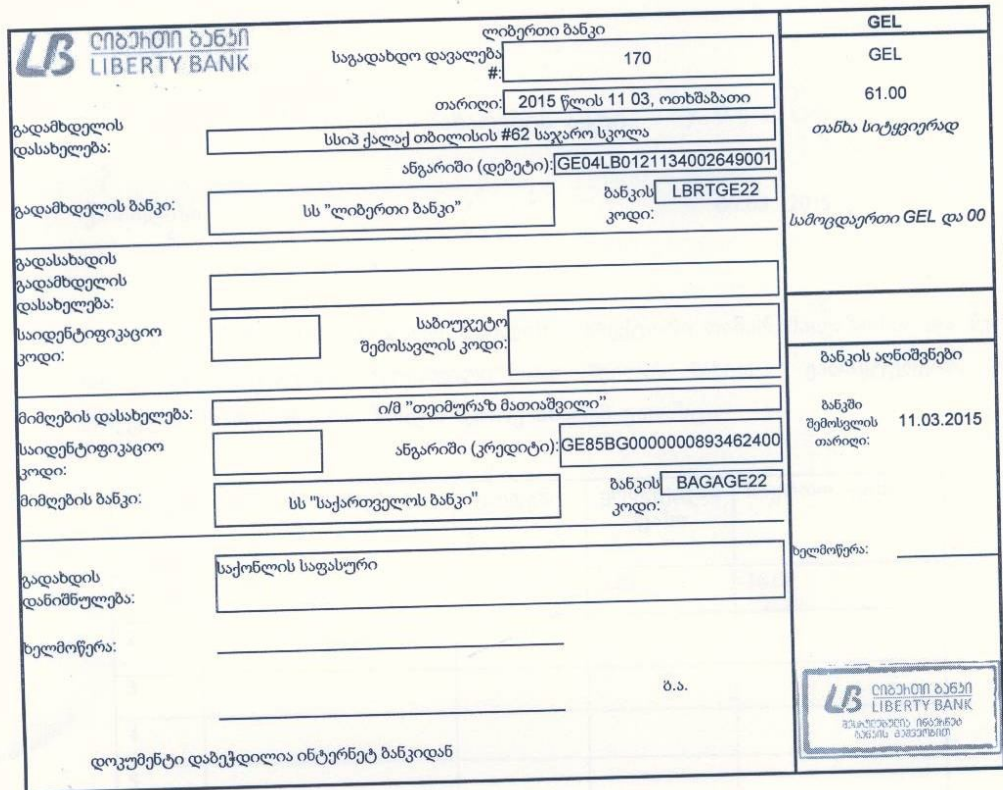 ლიბერთი ბანკი
LIBERTY BANK
ლიბერთი ბანკი
საგადახდო დავალება #: 170
თარიღი: 2015 წლის 11 03, ოთხშაბათი
გადამხდელის დასახელება: სსიპ ქალაქ თბილისის #62 საჯარო სკოლა
ანგარიში (დებეტი): GE04LB0121134002649001
გადამხდელის ბანკი: სს "ლიბერთი ბანკი"
ბანკის კოდი: LBRTGE22
გადასახადის გადამხდელის დასახელება:
საიდენტიფიკაციო კოდი:
საბიუჯეტო შემოსავლის კოდი:
მიმღების დასახელება: ი/მ "თეიმურაზ მათიაშვილი"
საიდენტიფიკაციო კოდი:
ანგარიში (კრედიტი): GE85BG0000000893462400
მიმღების ბანკი: სს "საქართველოს ბანკი"
ბანკის კოდი: BAGAGE22
გადახდის დანიშნულება: საქონლის საფასური
ხელმოწერა:
ბ.ა.
დოკუმენტი დაბეჭდილია ინტერნეტ ბანკიდან
GEL
GEL
61.00
თანხა სიტყვიერად
სამოცდაერთი GEL და 00
ბანკის აღნიშვნები
ბანკში შემოსვლის თარიღი: 11.03.2015
ხელმოწერა:
ლიბერთი ბანკი
LIBERTY BANK
შესრულებულია ინტერნეტ
ბანკის გამოყენებით